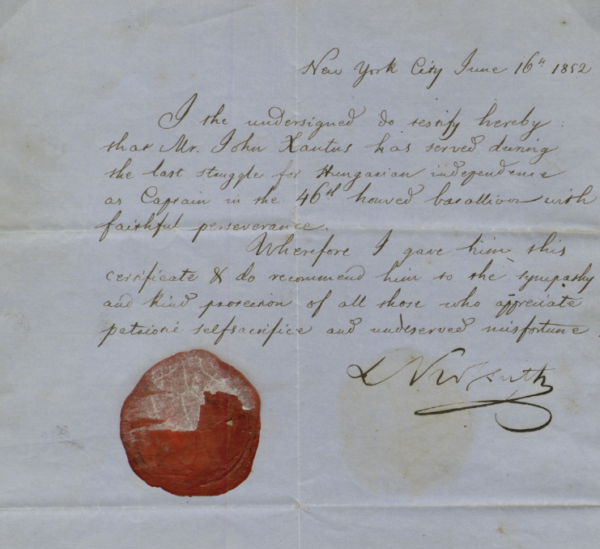 New York City June 16th 1852
I the undersigned do testify hereby
that Mr. John Xantus has served during
the last struggle for Hungarian independence
as Captain in the 46th honved batallion with
faithful perseverance.
Wherefore I gave him this
certificate & do recommend him to the sympathy
and kind protection of all those who appreciate
patriotic selfsacrifice and undeserved misfortune